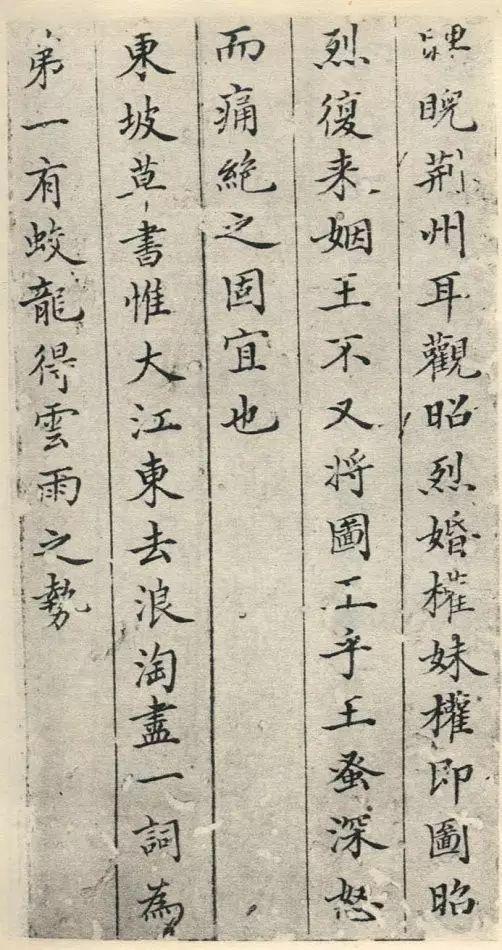 睨荆州耳觀昭烈婚權妹權即圖昭
烈復来姻王不又将圖工乎王蚤深怒
而痛絶之固宜也
東坡草書惟大江東去浪淘盡一詞為
弟一有蛟龍得雲雨之勢